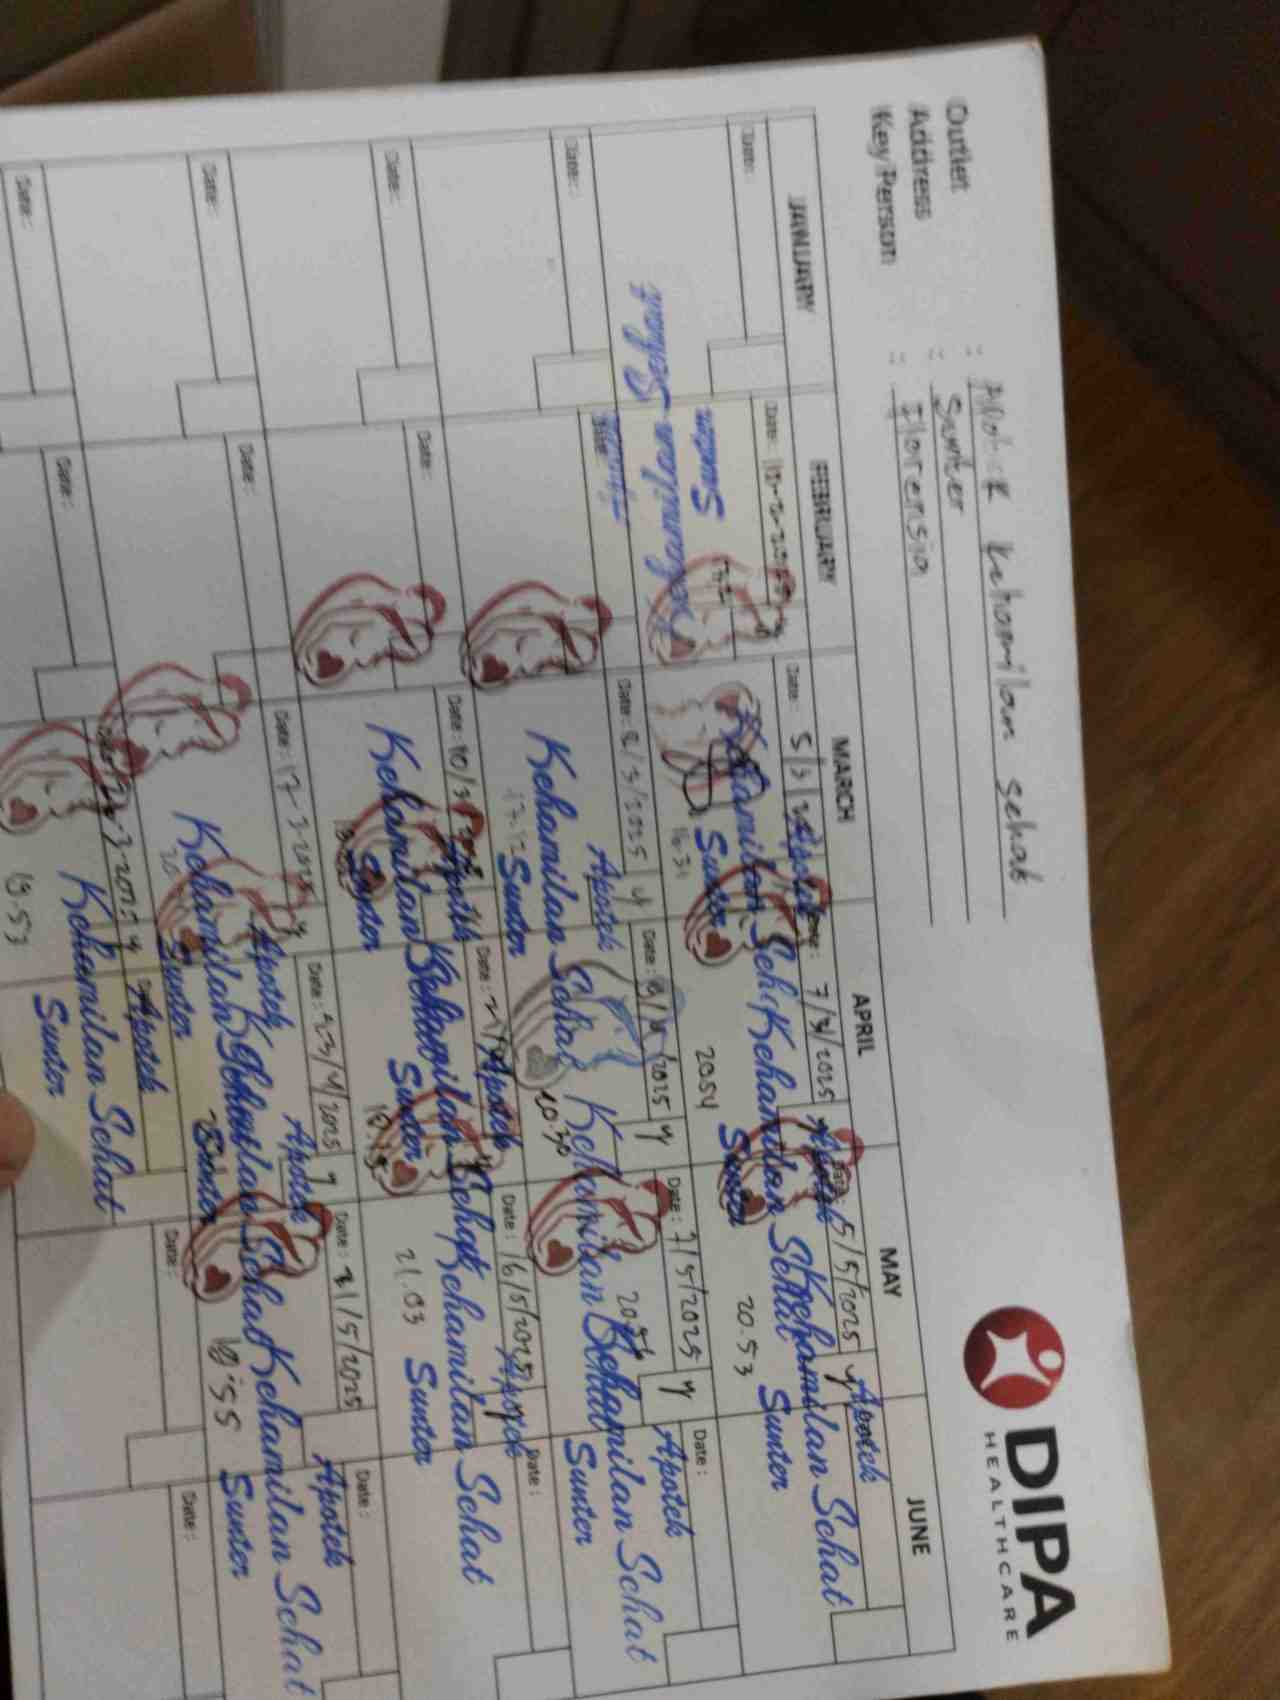 DIPA
HEALTHCARE
Outlet : Apotek Kehamilan sehat
Address : Sunter
Key Person : Florensia
JANUARY FEBRUARY MARCH APRIL MAY JUNE
Date: Date: Date: 5/3/ Date: 7/4/2025 y Date: 5/5/2025 y
Apotek
Kehamilan Sehat
Sunter
16.31
Apotek
Kehamilan Sehat
Sunter
20.54
Apotek
Kehamilan Sehat
Sunter
20.53
Kehamilan Sehat
Sunter
Date: Date: Date: 8/3/2025 y Date: /2025 y Date: 7/5/2025 y Date:
Apotek
Kehamilan Sehat
Sunter
17.12
Kehamilan Sehat
20.30
Apotek
Kehamilan Sehat
Sunter
Date: Date: Date: 10/3/ Date: Date: 16/5/2025 y Date:
Apotek
Kehamilan Sehat
Sunter
Apotek
Kehamilan Sehat
Sunter
Apotek
Kehamilan Sehat
Sunter
21.03
Date: Date: Date: 17-3-2025 y Date: 23/4/2025 y Date: 21/5/2025 Date:
Apotek
Kehamilan Sehat
Sunter
Apotek
Kehamilan Sehat
Sunter
Apotek
Kehamilan Sehat
Sunter
18.55
Date: Date: Date: Date:
Apotek
Kehamilan Sehat
Sunter
19.53